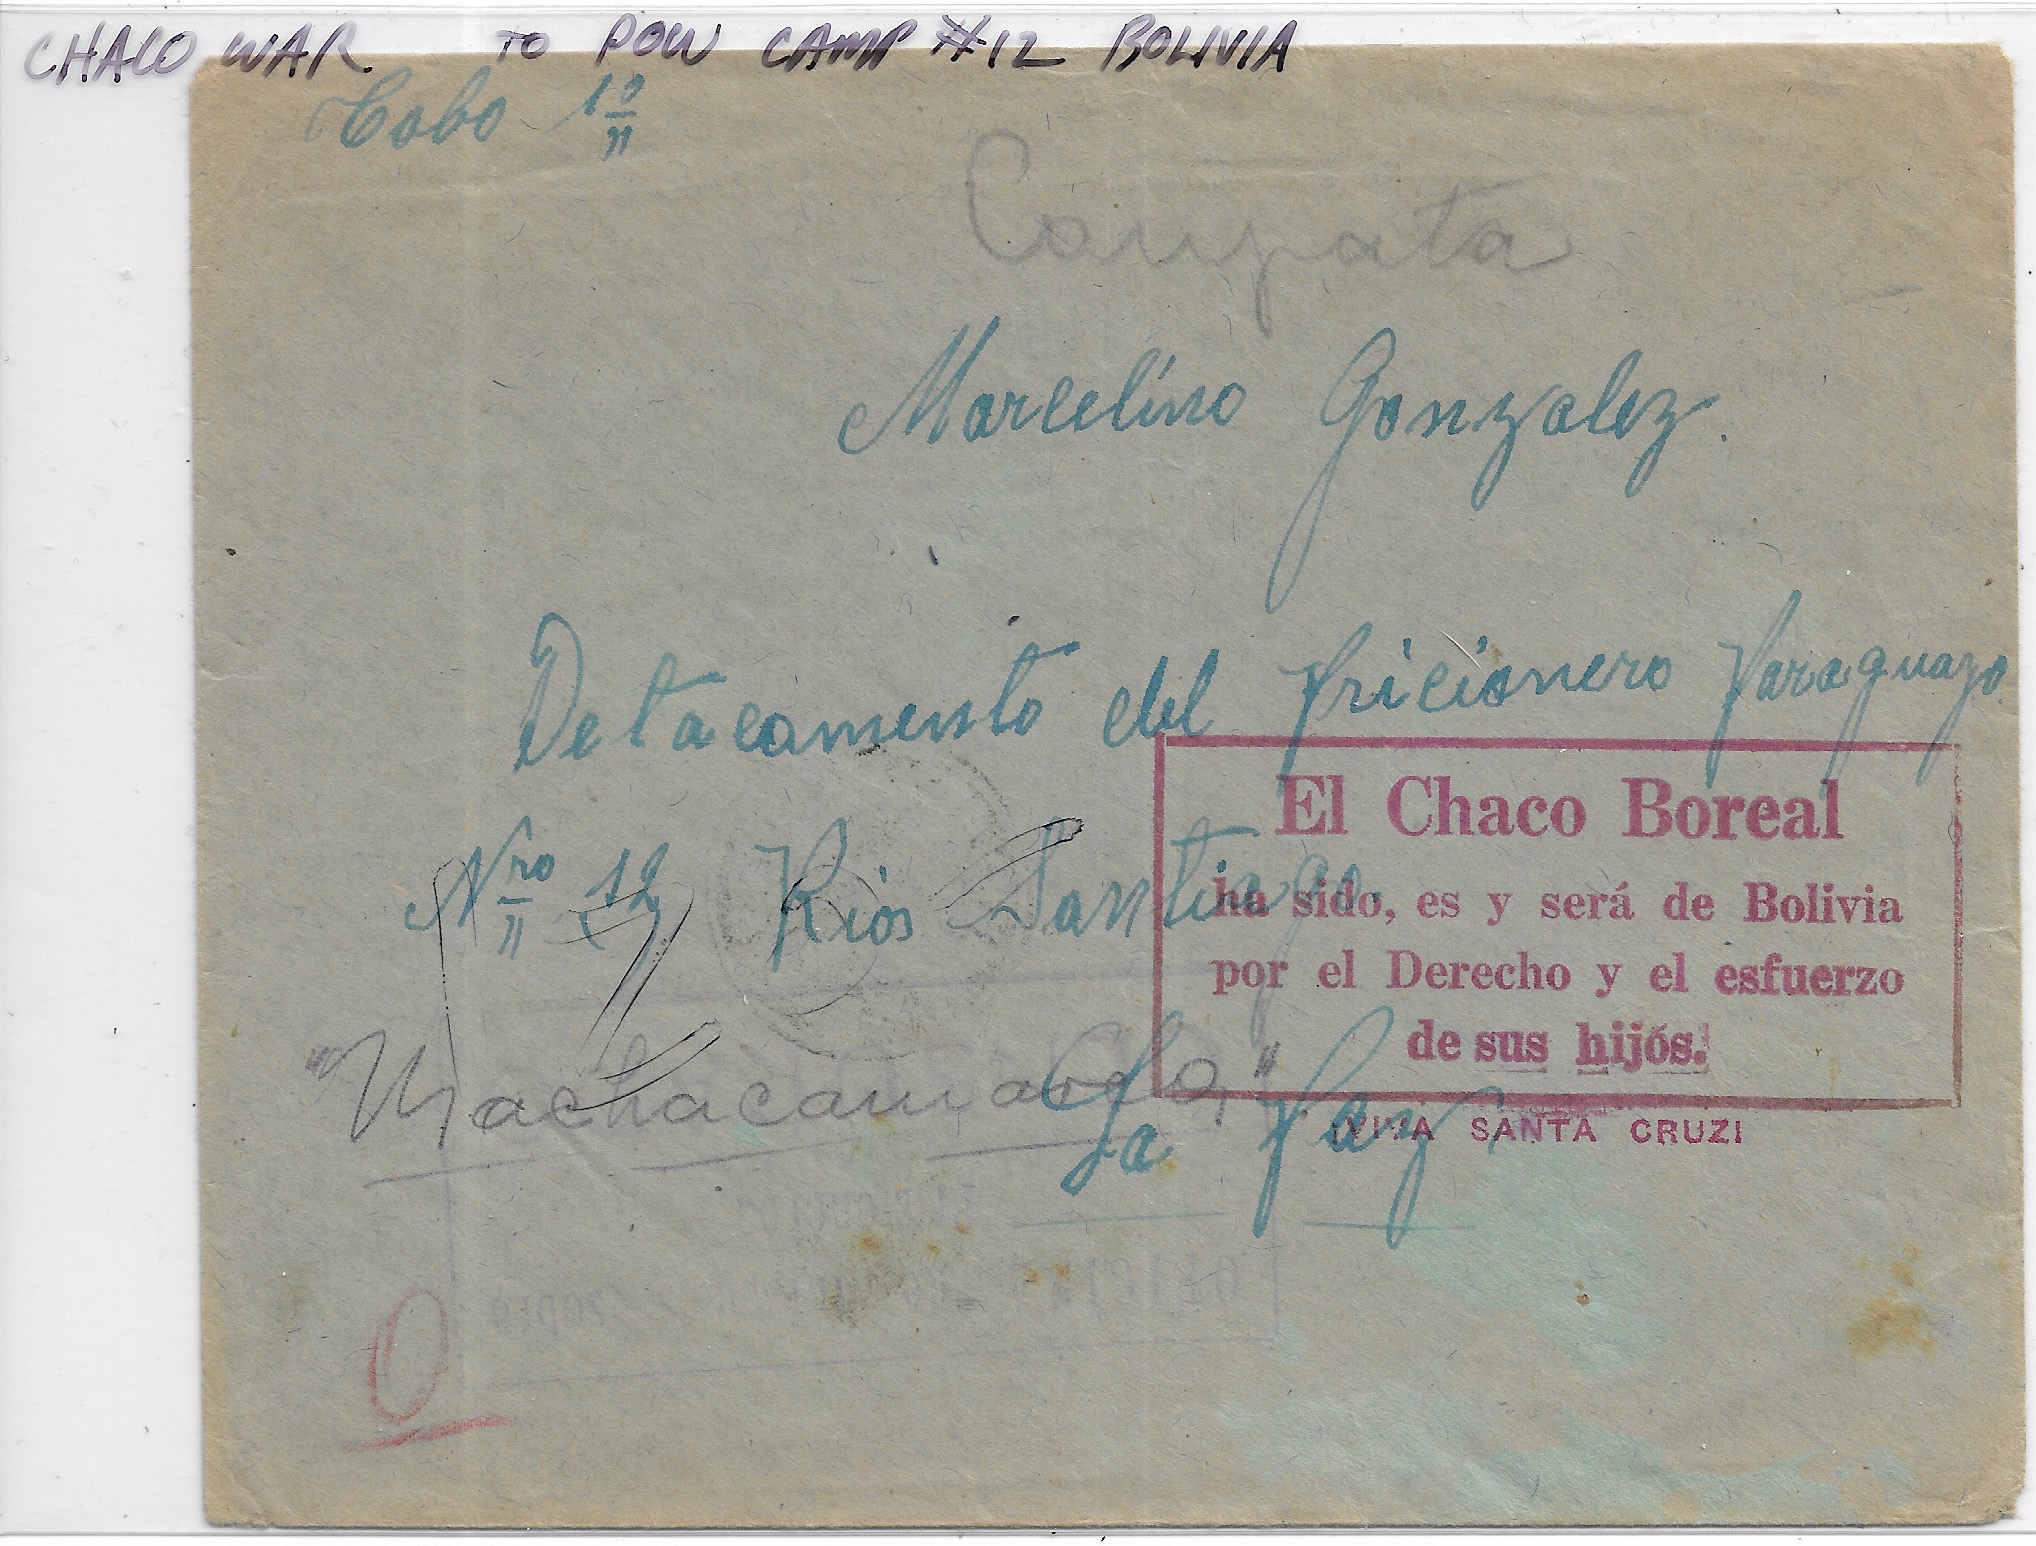 CHACO WAR TO POW CAMP #12 BOLIVIA
Cabo 1º
Campata
Marcelino Gonzalez.
Detacamento del Pricionero Paraguayo
Nro 12 Rios Santiago.
El Chaco Boreal
ha sido, es y será de Bolivia
por el Derecho y el esfuerzo
de sus hijós.
"Machacamarca"
La Paz
¡VIVA SANTA CRUZ!
0